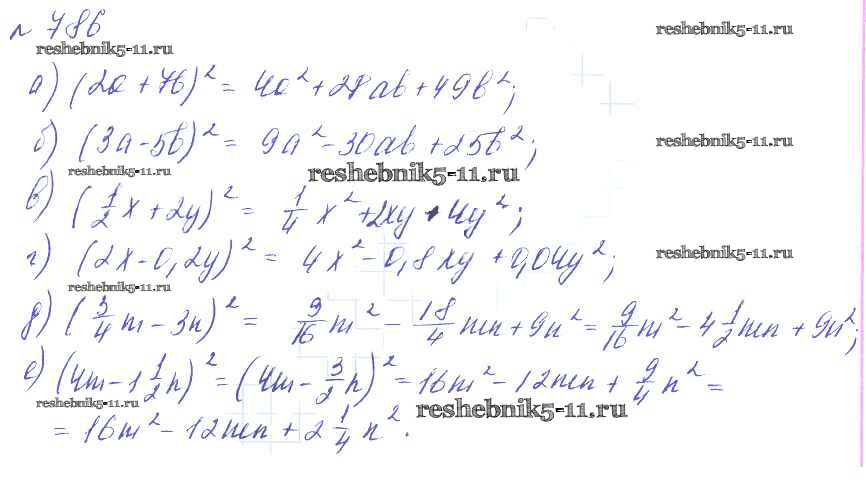 № 786
reshebnik5-11.ru
reshebnik5-11.ru
а) (2a + 7b)² = 4a² + 28ab + 49b²;
б) (3a - 5b)² = 9a² - 30ab + 25b²;
reshebnik5-11.ru
reshebnik5-11.ru
reshebnik5-11.ru
в) (1/2 x + 2y)² = 1/4 x² + 2xy + 4y²;
г) (2x - 0,2y)² = 4x² - 0,8xy + 0,04y²;
reshebnik5-11.ru
reshebnik5-11.ru
д) (3/4 m - 3n)² = 9/16 m² - 18/4 mn + 9n² = 9/16 m² - 4 1/2 mn + 9n²;
е) (4m - 1 1/2 n)² = (4m - 3/2 n)² = 16m² - 12mn + 9/4 n² =
reshebnik5-11.ru
reshebnik5-11.ru
= 16m² - 12mn + 2 1/4 n².